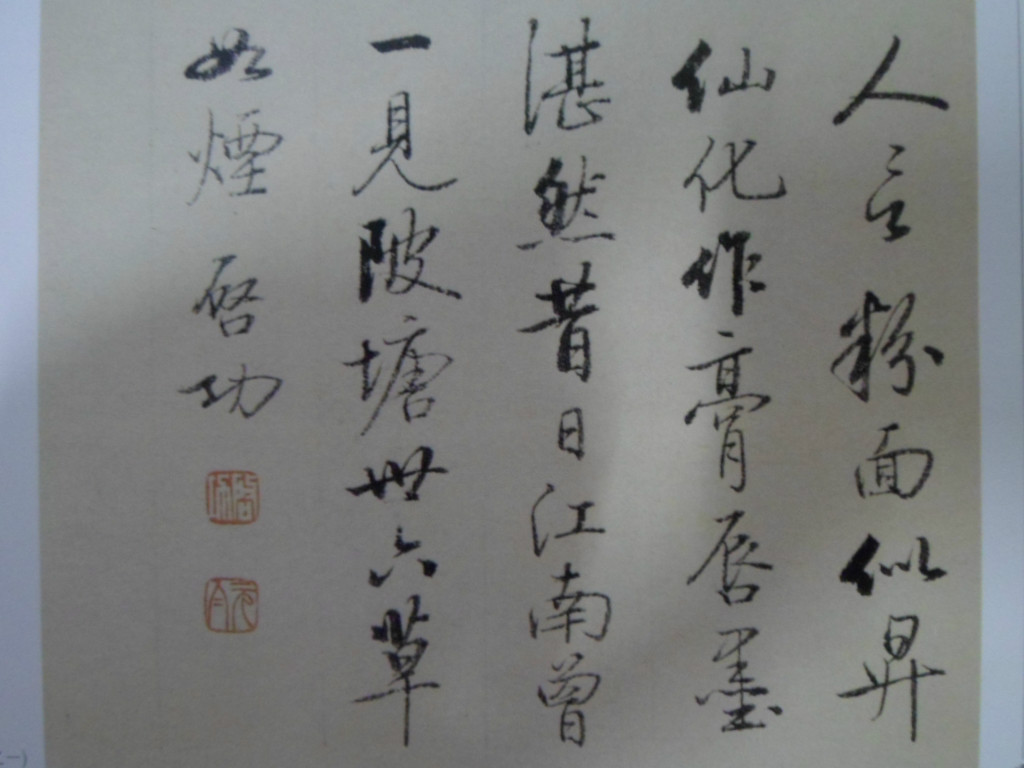 人言粉面似昇
仙化作膏唇墨
湛然昔日江南曾
一見陂塘卅六草
如煙 啓功